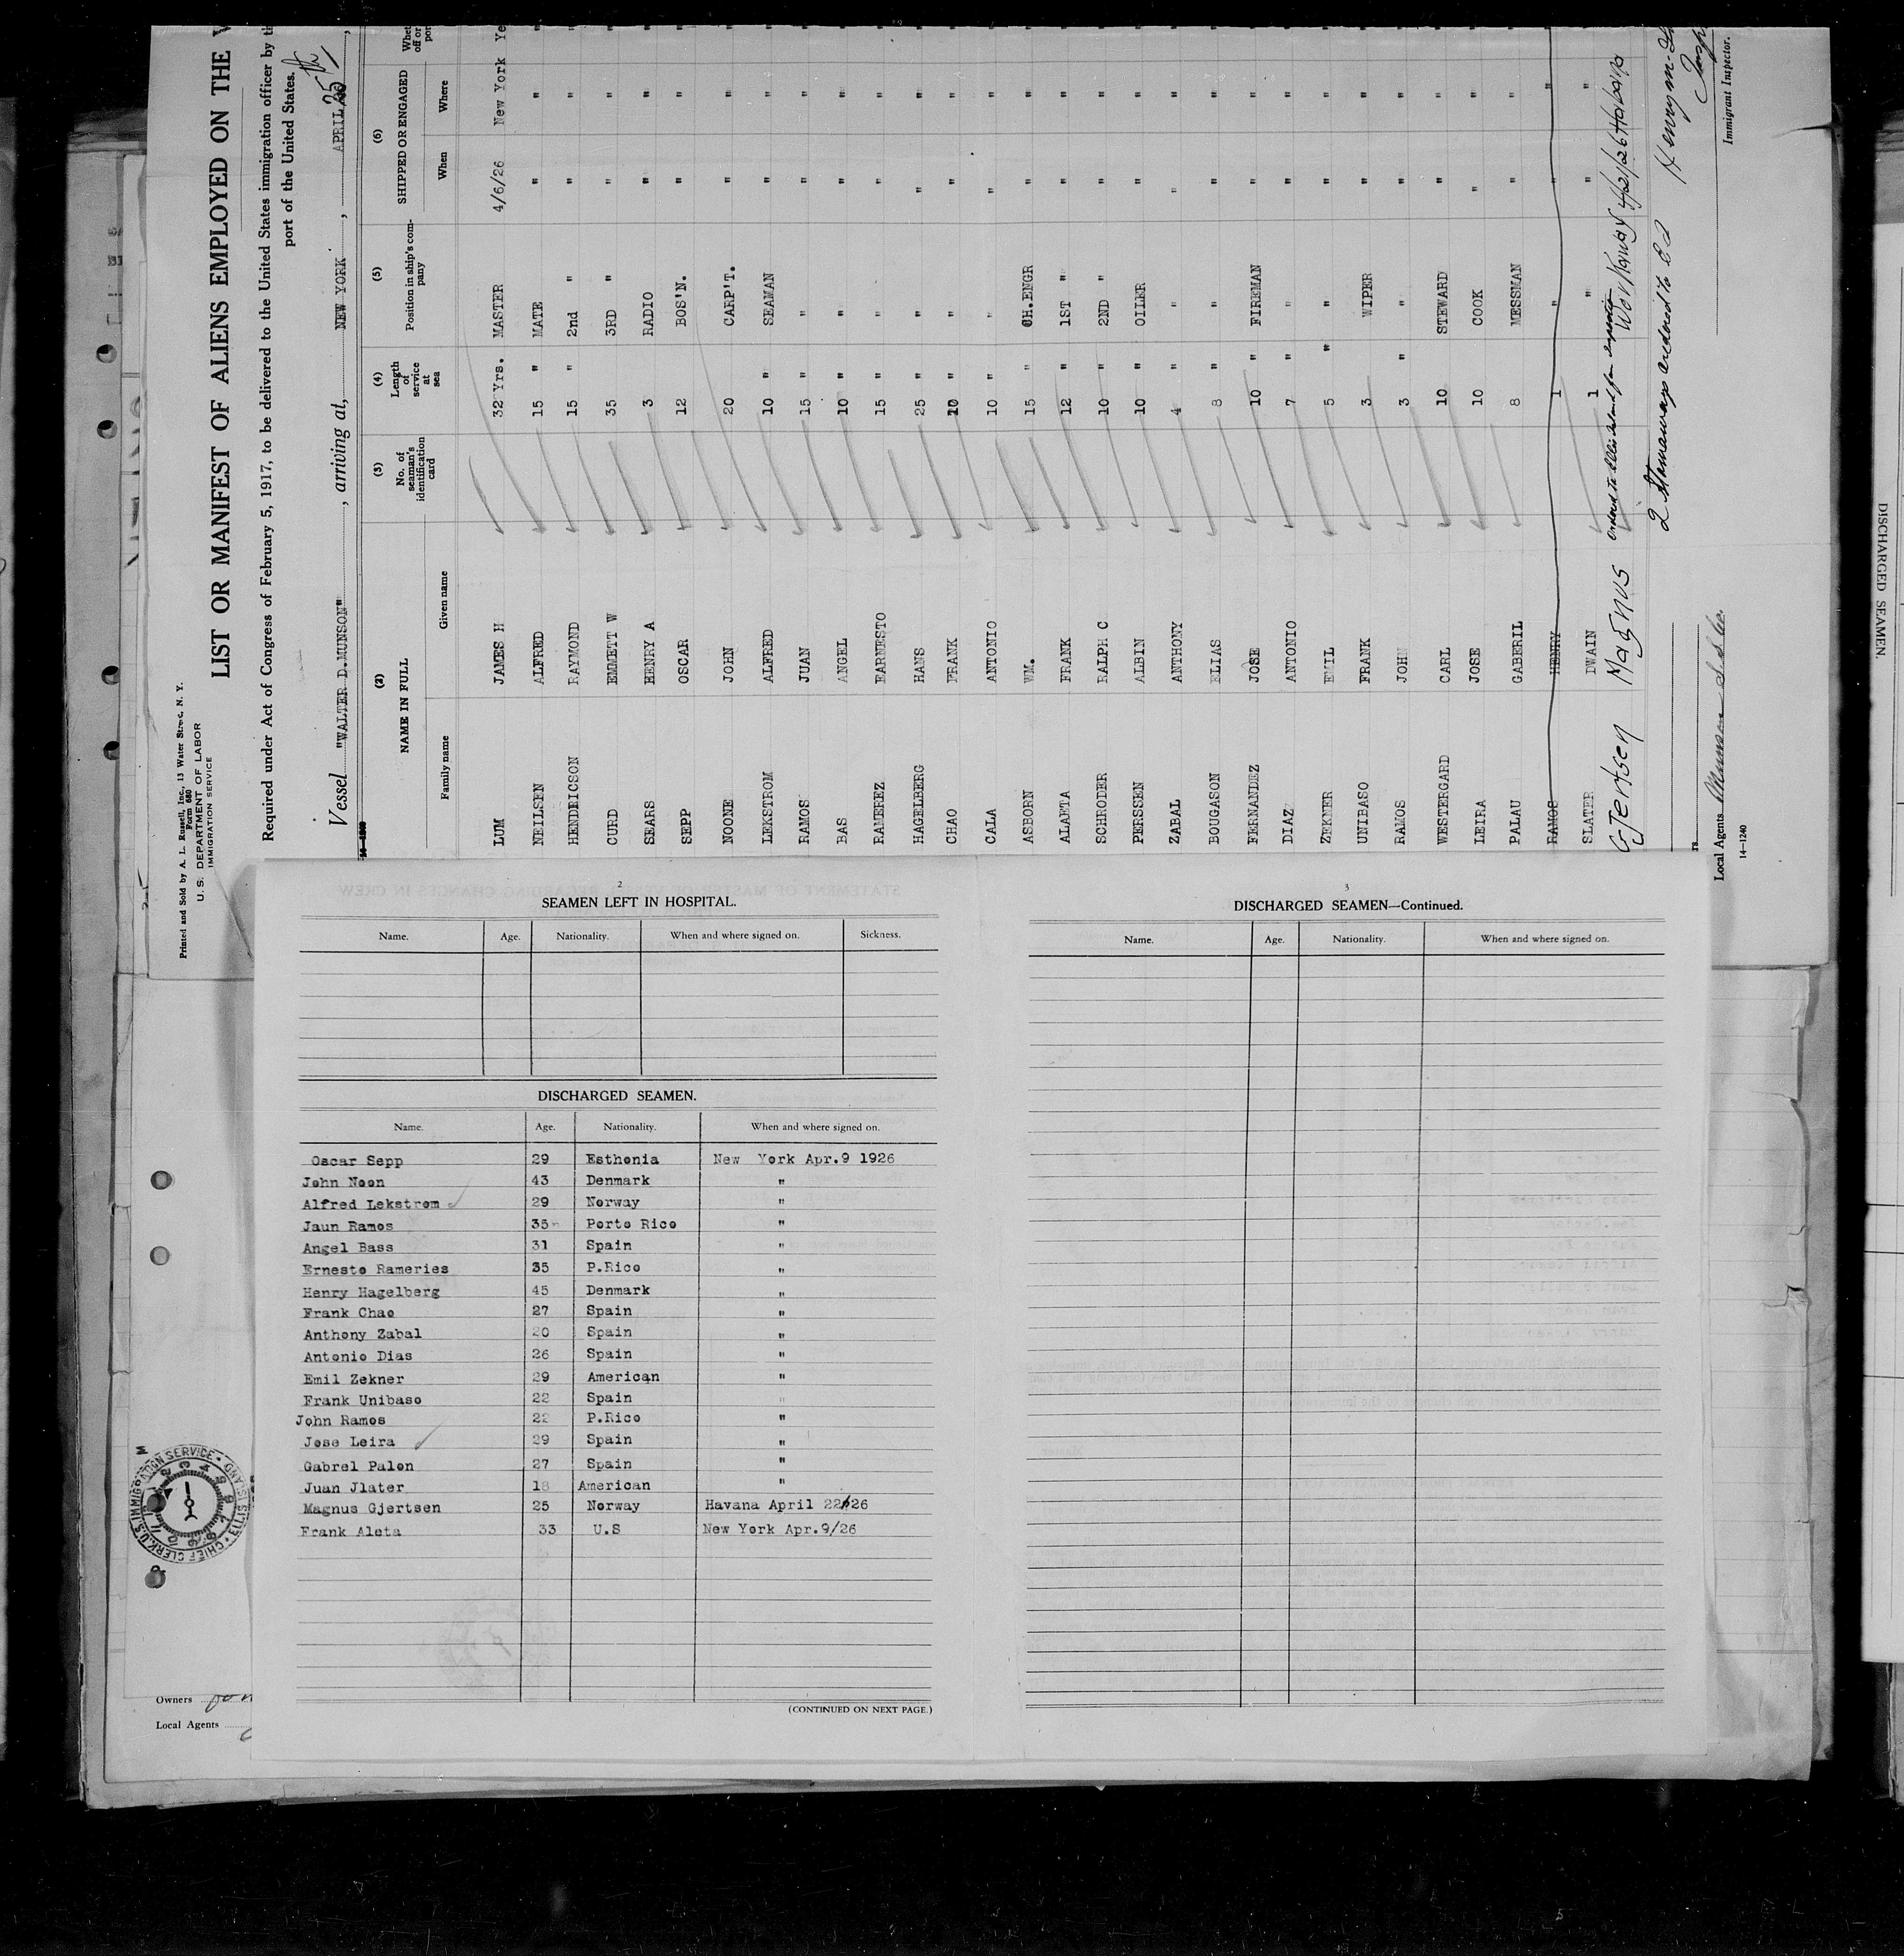 Printed and Sold by A. L. Russell, Inc., 13 Water Street, N. Y.
Form 680
U. S. DEPARTMENT OF LABOR
IMMIGRATION SERVICE
LIST OR MANIFEST OF ALIENS EMPLOYED ON THE
Required under Act of Congress of February 5, 1917, to be delivered to the United States immigration officer by
port of the United States.
Vessel "WALTER D. MUNSON", arriving at, NEW YORK, APRIL 25th,
(2) (3) (4) (5) (6)
NAME IN FULL No. of seaman's identification card Length of service at sea Position in ship's company SHIPPED OR ENGAGED
Family name Given name When Where
LUM JAMES H 32 Yrs. MASTER 4/6/26 New York Ye
NEILSEN ALFRED 15 " MATE " " "
HENDRICSON RAYMOND 15 " 2nd " " " "
CURD EMMETT W 35 3RD " " " "
SEARS HENRY A 3 RADIO " " "
SEPP OSCAR 12 BOS'N. " " "
NOONE JOHN 20 CARP'T. " " "
LEKSTROM ALFRED 10 " SEAMAN " " "
RAMOS JUAN 15 " " " " "
BAS ANGEL 10 " " " " "
RAMEREZ EARNESTO 15 " " " " "
HAGELBERG HANS 25 " " " " "
CHAO FRANK 20 " " " " "
CALA ANTONIO 10 " " " " "
ASBORN WM. 15 " CH.ENGR " " "
ALAETA FRANK 12 " 1ST " " " "
SCHRODER RALPH C 10 " 2ND " " " "
PERSSEN ALBIN 10 " OILER " " "
ZABAL ANTHONY 4 " " " " "
BOUGASON ELIAS 8 " " " " "
FERNANDEZ JOSE 10 " FIREMAN " " "
DIAZ ANTONIO 7 " " " " "
ZEKNER EMIL 5 " " " " "
UNIBASO FRANK 3 WIPER " " "
RAMOS JOHN 3 " " " " "
WESTERGARD CARL 10 STEWARD " " "
LEIRA JOSE 10 COOK " " "
PALAU GABERIL 8 MESSMAN " " "
RAMOS HENRY 1 " " "
SLATER DWAIN 1 " " "
Gjertsen Magnus Workaway 4/21/26 Habana
2 Stowaways ordered to
Immigrant Inspector.
Local Agents Munson S.S. Co.
14—1240
2
SEAMEN LEFT IN HOSPITAL.
Name. Age. Nationality. When and where signed on. Sickness.
DISCHARGED SEAMEN.
Name. Age. Nationality. When and where signed on.
Oscar Sepp 29 Esthonia New York Apr.9 1926
John Noon 43 Denmark "
Alfred Lekstrom 29 Norway "
Jaun Ramos 35 Porto Rico "
Angel Bass 31 Spain "
Ernesto Rameries 35 P.Rico "
Henry Hagelberg 45 Denmark "
Frank Chao 27 Spain "
Anthony Zabal 20 Spain "
Antonio Dias 26 Spain "
Emil Zekner 29 American "
Frank Unibaso 22 Spain "
John Ramos 22 P.Rico "
Jose Leira 29 Spain "
Gabrel Palon 27 Spain "
Juan Jlater 18 American "
Magnus Gjertsen 25 Norway Havana April 22/26
Frank Aleta 33 U.S New York Apr.9/26
(CONTINUED ON NEXT PAGE.)
3
DISCHARGED SEAMEN—Continued.
Name. Age. Nationality. When and where signed on.
Owners
Local Agents
DISCHARGED SEAMEN.